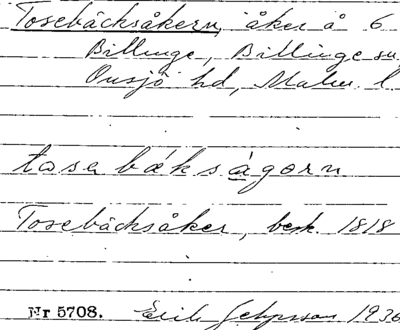 Tosebäcksåkern, åker å 6
Billinge, Billinge sn
Onsjö hd, Malm. l
tosabæksågorn
Tosebäcksåker, besk. 1818
Nr 5708. Erik 1936